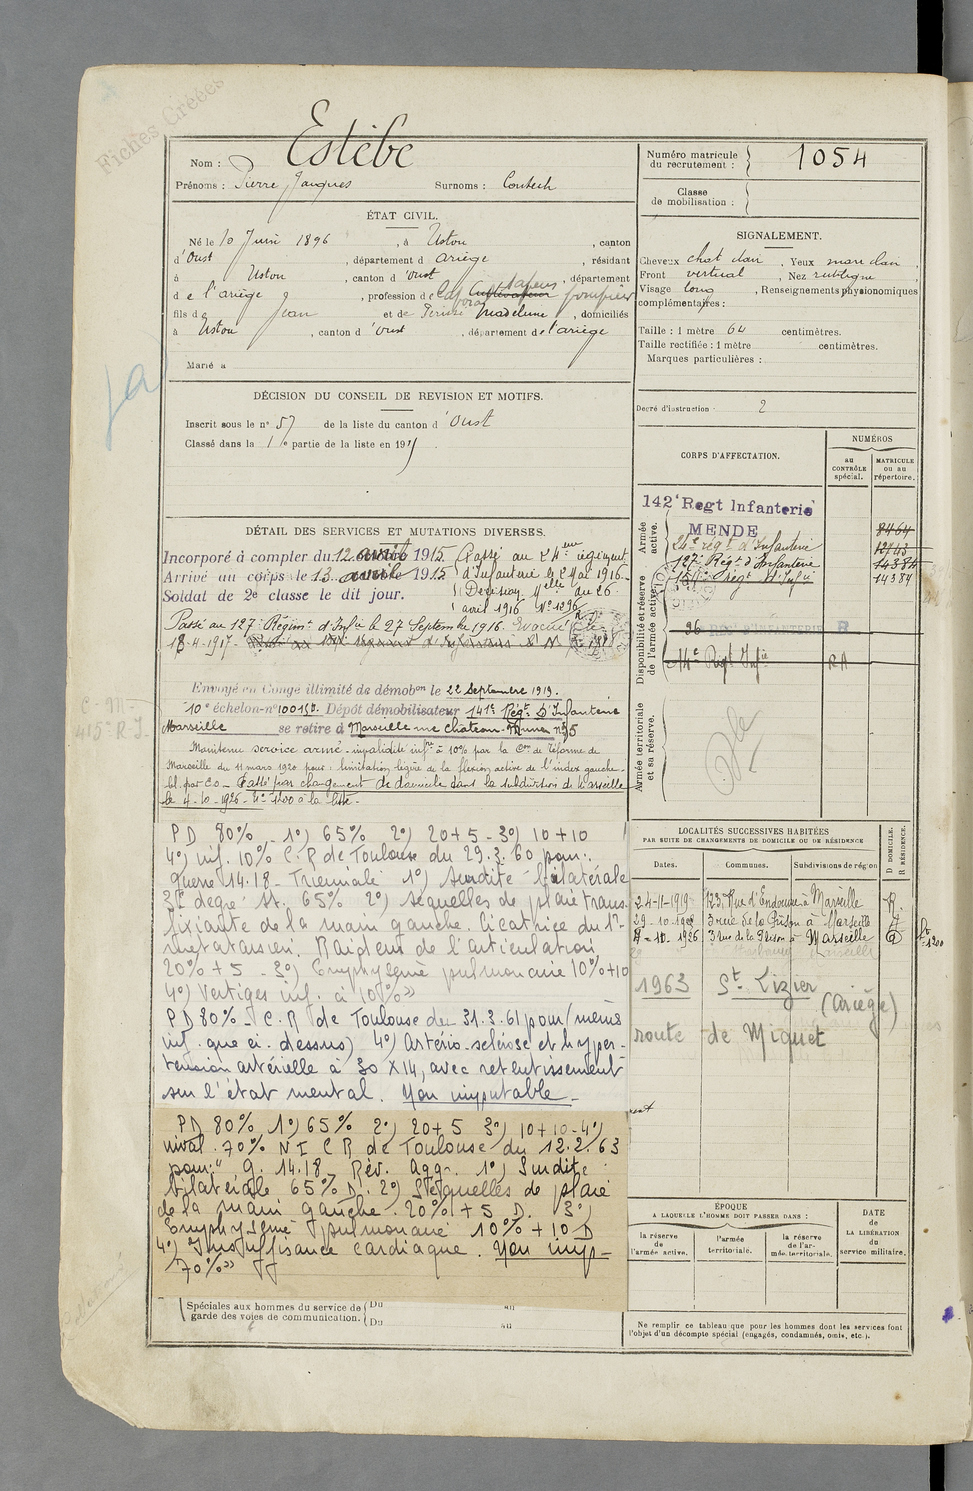 Fiches Créées
Nom : Estèbe
Prénoms : Pierre Jacques Surnoms : Coutech
ÉTAT CIVIL.
Né le 10 Juin 1896, à Ustou, canton
d'Oust, département d Ariège, résidant
à Ustou, canton d'Oust, département
d e l'ariège, profession de Cultivateur
fils de Jean et de Madeleine, domiciliés
à Ustou, canton d'Oust, département de l'ariège
Marié à
DÉCISION DU CONSEIL DE REVISION ET MOTIFS.
Inscrit sous le n° 57 de la liste du canton d'Oust
Classé dans la 1re partie de la liste en 191
DÉTAIL DES SERVICES ET MUTATIONS DIVERSES.
Incorporé à compter du 12 1915
Arrivé au corps le 13 1915
Soldat de 2e classe le dit jour.
Passé au 24eme régiment
d'Infanterie le 2 Mai 1916
Décision Mlle du 26
avril 1916 N° 1296
Passé au 127e Régimt d'Infie le 27 Septembre 1916. Evacué
18-4-1917-
Envoyé en Congé illimité de démobon le 22 Septembre 1919.
10e échelon-n° Dépôt démobilisateur 141e Régt D'Infanterie
Marseille se retire à Marseille rue Chateau n° 5
Maintenu service armé - invalidité infre à 10% par la Con de Réforme de
Marseille du 11 mars 1920 pour : limitation légère de la flexion active de l'index gauche.
Passé par changement de domicile dans la subdivision de Marseille
le 4-10-1926 - n° 1200 à la liste.
C-M-
415e R.I.
PD 80% - 1°) 65% 2°) 20+5 - 3°) 10+10
4°) inf. 10% C.R de Toulouse du 29.3.60 pour :
guerre 14.18 - Triennale 1°) Surdité bilatérale
3e degré St. 65% 2°) séquelles de plaie trans
fixiante de la main gauche. Cicatrice du 1er
metatarsien. Raideur de l'articulation
20%+5 - 3°) Emphysème pulmonaire 10%+10
4°) Vertiges inf. à 10%"
PD 80% - C.R de Toulouse du 31.3.61 pour (mêmes
inf. que ci-dessus) 4°) Artério-sclérose et hyper-
tension artérielle à 30 X 14, avec retentissement
sur l'état mental. Non imputable -
PD 80% 1°) 65% 2°) 20+5 3°) 10+10 - 4°)
nival. 70% N I C R de Toulouse du 12.2.63
pour:" G. 14.18 - Rév. Aggr. 1°) Surdité
bilatérale 65% D. 2°) Séquelles de plaie
de la main gauche. 20% + 5 D. 3°)
Emphysème pulmonaire 10% + 10 D
4°) Insuffisance cardiaque. Non imp-
70%"
Spéciales aux hommes du service de
garde des voies de communication.
Du au
Du au
Numéro matricule
du recrutement : 1054
Classe
de mobilisation :
SIGNALEMENT.
Cheveux chat clair, Yeux marr clair,
Front vertical, Nez rectiligne
Visage long, Renseignements physionomiques
complémentaires :
Taille : 1 mètre 64 centimètres.
Taille rectifiée : 1 mètre centimètres.
Marques particulières :
Degré d'instruction : 2
CORPS D'AFFECTATION.
NUMÉROS
au
CONTRÔLE
spécial.
MATRICULE
ou au
répertoire.
Armée
active.
142e Regt Infanterie
MENDE
8464
24e régt d'Infanterie
127e Régt d'Infanterie 14384
régt d'Infie 14384
Disponibilité et réserve
de l'armée active.
96 REGt D'INFANTERIE R
14e Regt Infie RA
Armée territoriale
et sa réserve.
LOCALITÉS SUCCESSIVES HABITÉES
PAR SUITE DE CHANGEMENTS DE DOMICILE OU DE RÉSIDENCE
D DOMICILE.
R RÉSIDENCE.
Dates. Communes. Subdivisions de région
24-11-1919 123, Rue d'Endoume à Marseille R.
29-10-19 3 rue de la Prison à Marseille
4-10-1926 3 Rue de la Prison à Marseille D n° 1200
1963 St Lizier (Ariège)
route de Miquet
ÉPOQUE
A LAQUELLE L'HOMME DOIT PASSER DANS :
la réserve
de
l'armée active.
l'armée
territoriale.
la réserve
de l'ar-
mée territoriale.
DATE
de
LA LIBÉRATION
du
service militaire.
Ne remplir ce tableau que pour les hommes dont les services font
l'objet d'un décompte spécial (engagés, condamnés, omis, etc.).